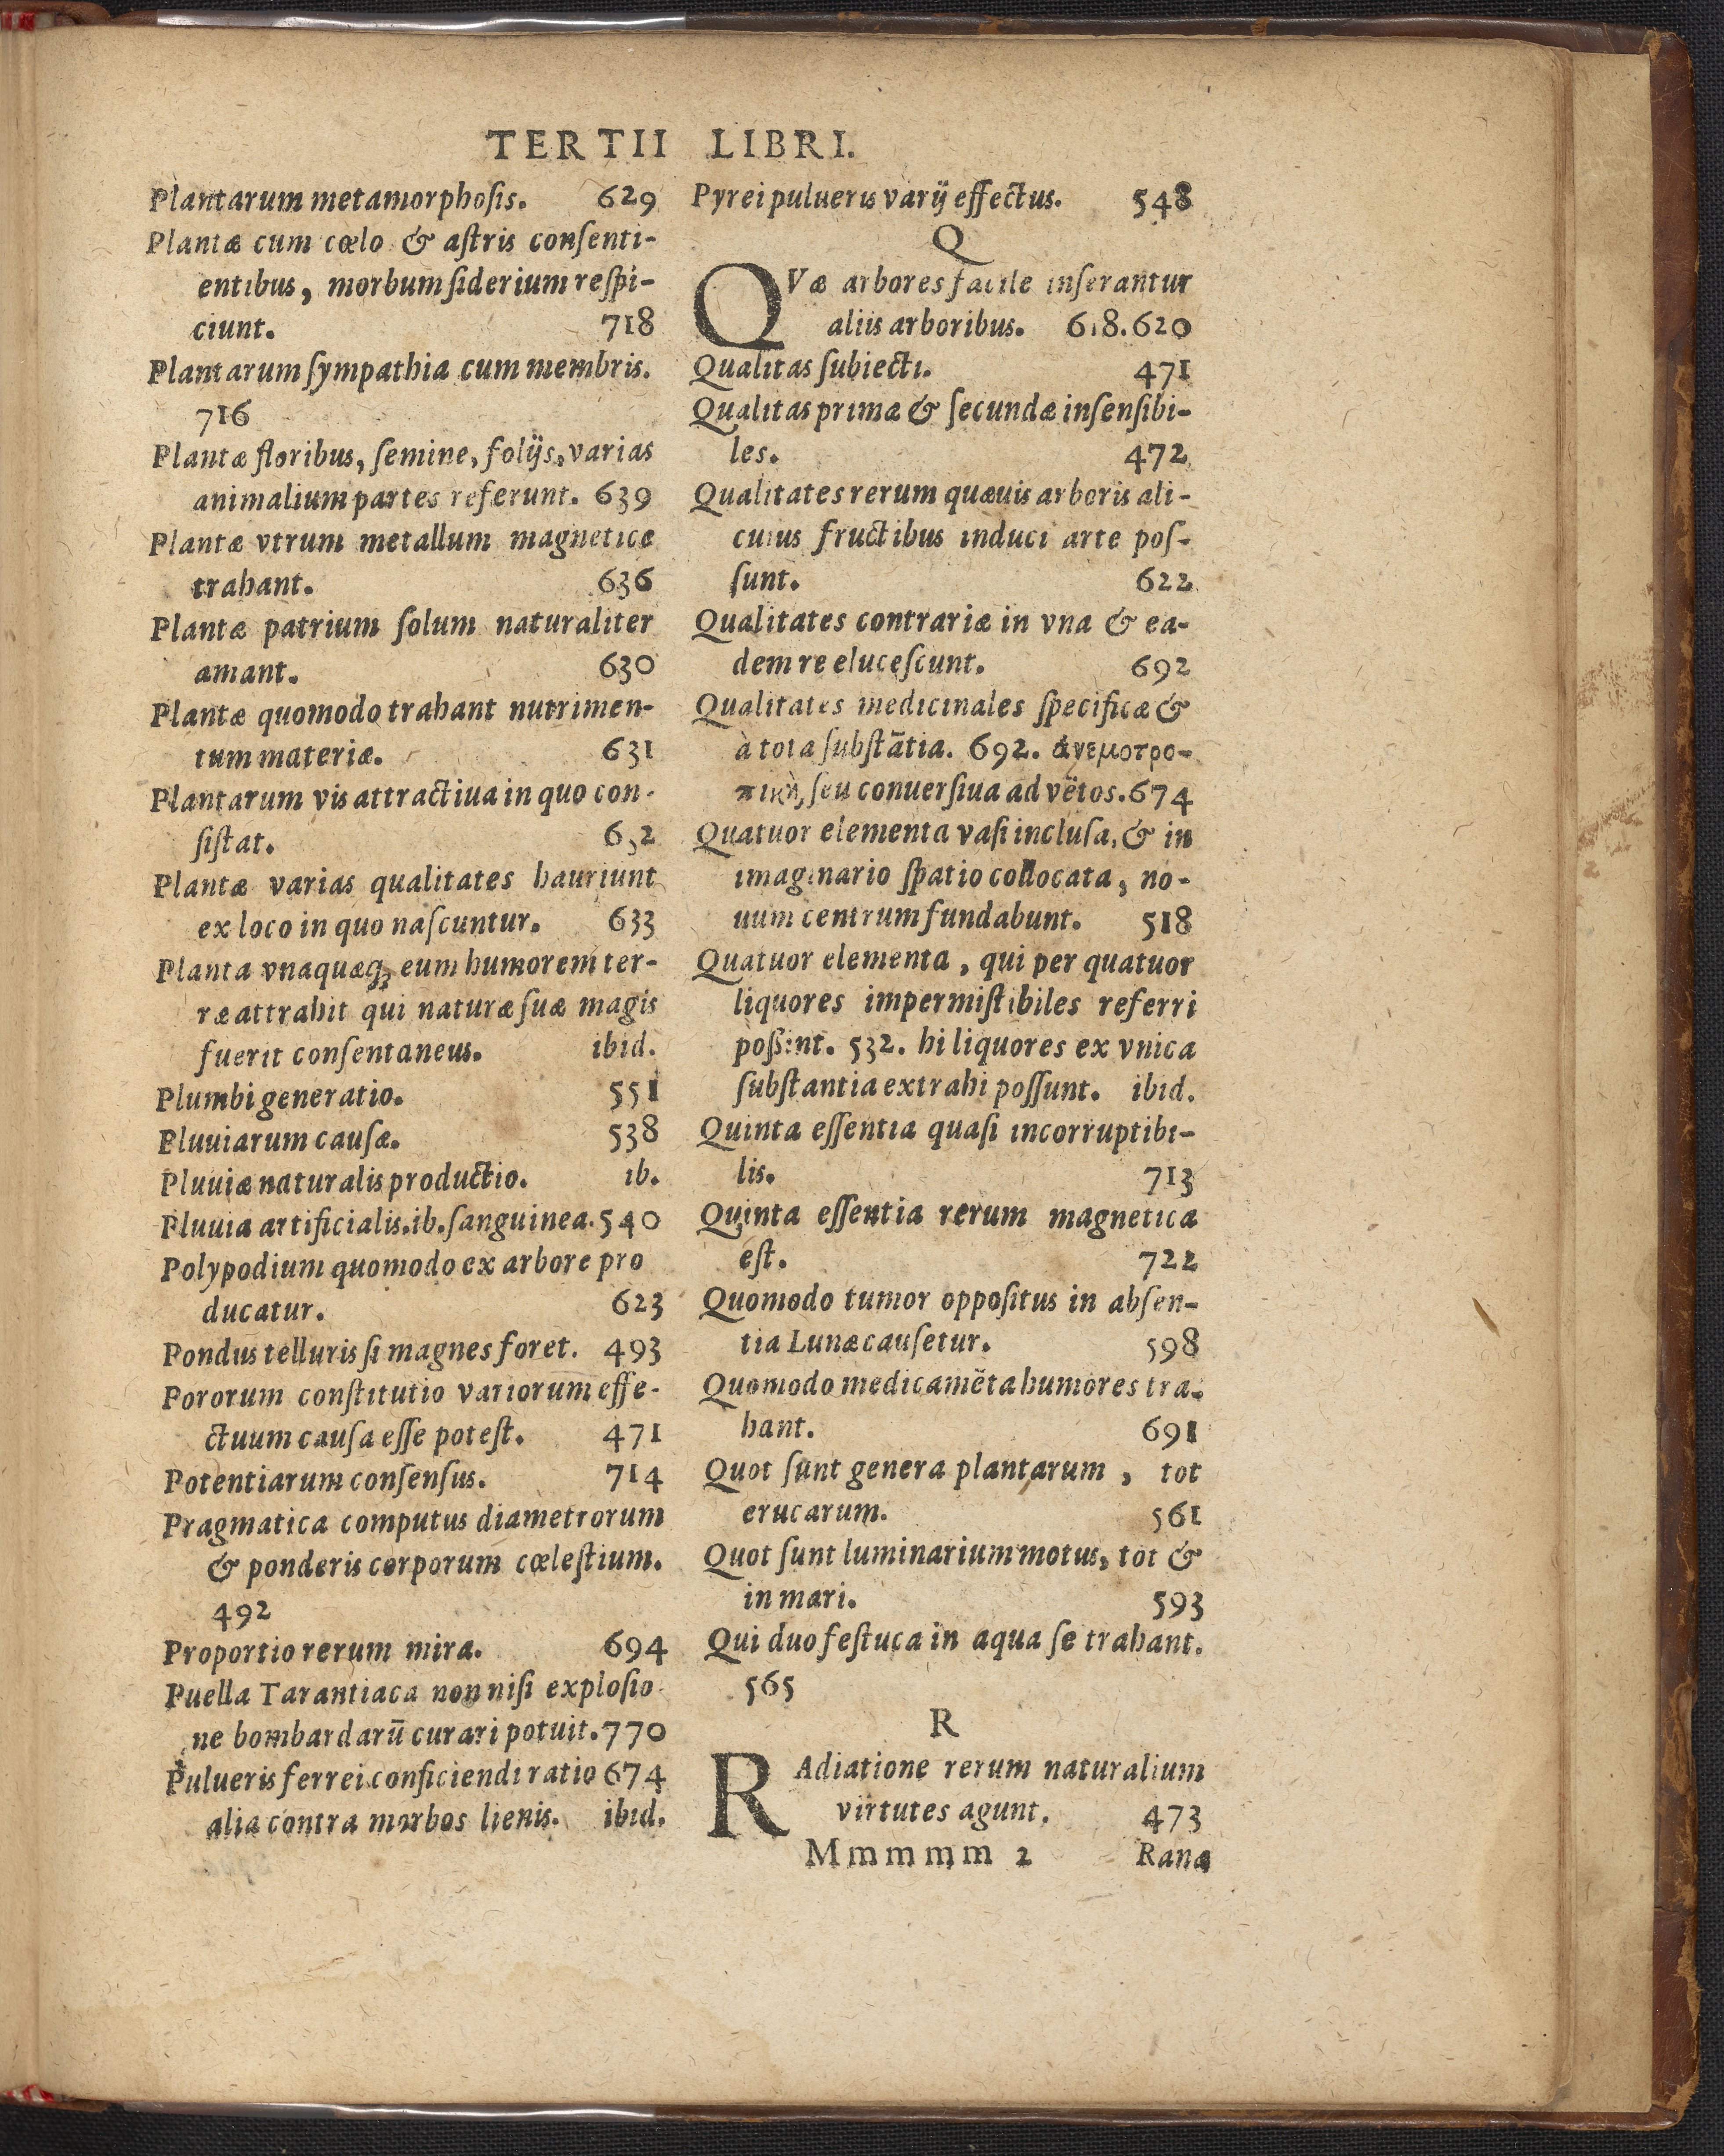 TERTII LIBRI.
Plantarum metamorphoſis. 629
Plantæ cum cœlo & aſtris conſenti-
entibus, morbum ſiderium reſpi-
ciunt. 718
Plantarum ſympathia cum membris.
716
Plantæ floribus, ſemine, folijs, varias
animalium partes referunt. 639
Plantæ vtrum metallum magneticè
trahant. 636
Plantæ patrium ſolum naturaliter
amant. 630
Plantæ quomodo trahant nutrimen-
tum materiæ. 631
Plantarum vis attractiua in quo con-
ſiſtat. 632
Plantæ varias qualitates hauriunt
ex loco in quo naſcuntur. 633
Planta vnaquæq; eum humorem ter-
ræ attrahit qui naturæ ſuæ magis
fuerit conſentaneus. ibid.
Plumbi generatio. 551
Pluuiarum cauſæ. 538
Pluuiæ naturalis productio. ib.
Pluuia artificialis. ib. ſanguinea. 540
Polypodium quomodo ex arbore pro
ducatur. 623
Pondus telluris ſi magnes foret. 493
Pororum conſtitutio variorum effe-
ctuum cauſa eſſe poteſt. 471
Potentiarum conſenſus. 714
Pragmatica computus diametrorum
& ponderis corporum cœleſtium.
492
Proportio rerum mira. 694
Puella Tarantiaca non niſi exploſio-
ne bombardarū curari potuit. 770
Pulueris ferrei conficiendi ratio 674
alia contra morbos lienis. ibid.
Pyrei pulueris varij effectus. 548
Q
QVæ arbores facile inſerantur
aliis arboribus. 618. 620
Qualitas ſubiecti. 471
Qualitas primæ & ſecundæ inſenſibi-
les. 472
Qualitates rerum quæuis arboris ali-
cuius fructibus induci arte poſ-
ſunt. 622
Qualitates contrariæ in vna & ea-
dem re eluceſcunt. 692
Qualitates medicinales ſpecificæ &
à tota ſubſtātia. 692. ἀνεμοτρο-
πικὴ, ſeu conuerſiua ad vētos. 674
Quatuor elementa vaſi incluſa, & in
imaginario ſpatio collocata, no-
uum centrum fundabunt. 518
Quatuor elementa, qui per quatuor
liquores impermiſtibiles referri
poßint. 532. hi liquores ex vnica
ſubſtantia extrahi poſſunt. ibid.
Quinta eſſentia quaſi incorruptibi-
lis. 713
Quinta eſſentia rerum magnetica
eſt. 722
Quomodo tumor oppoſitus in abſen-
tia Lunæ cauſetur. 598
Quomodo medicamēta humores tra-
hant. 691
Quot ſunt genera plantarum, tot
erucarum. 561
Quot ſunt luminarium motus, tot &
in mari. 593
Qui duo feſtuca in aqua ſe trahant.
565
R
RAdiatione rerum naturalium
virtutes agunt. 473
Mmmmm 2 Ranæ